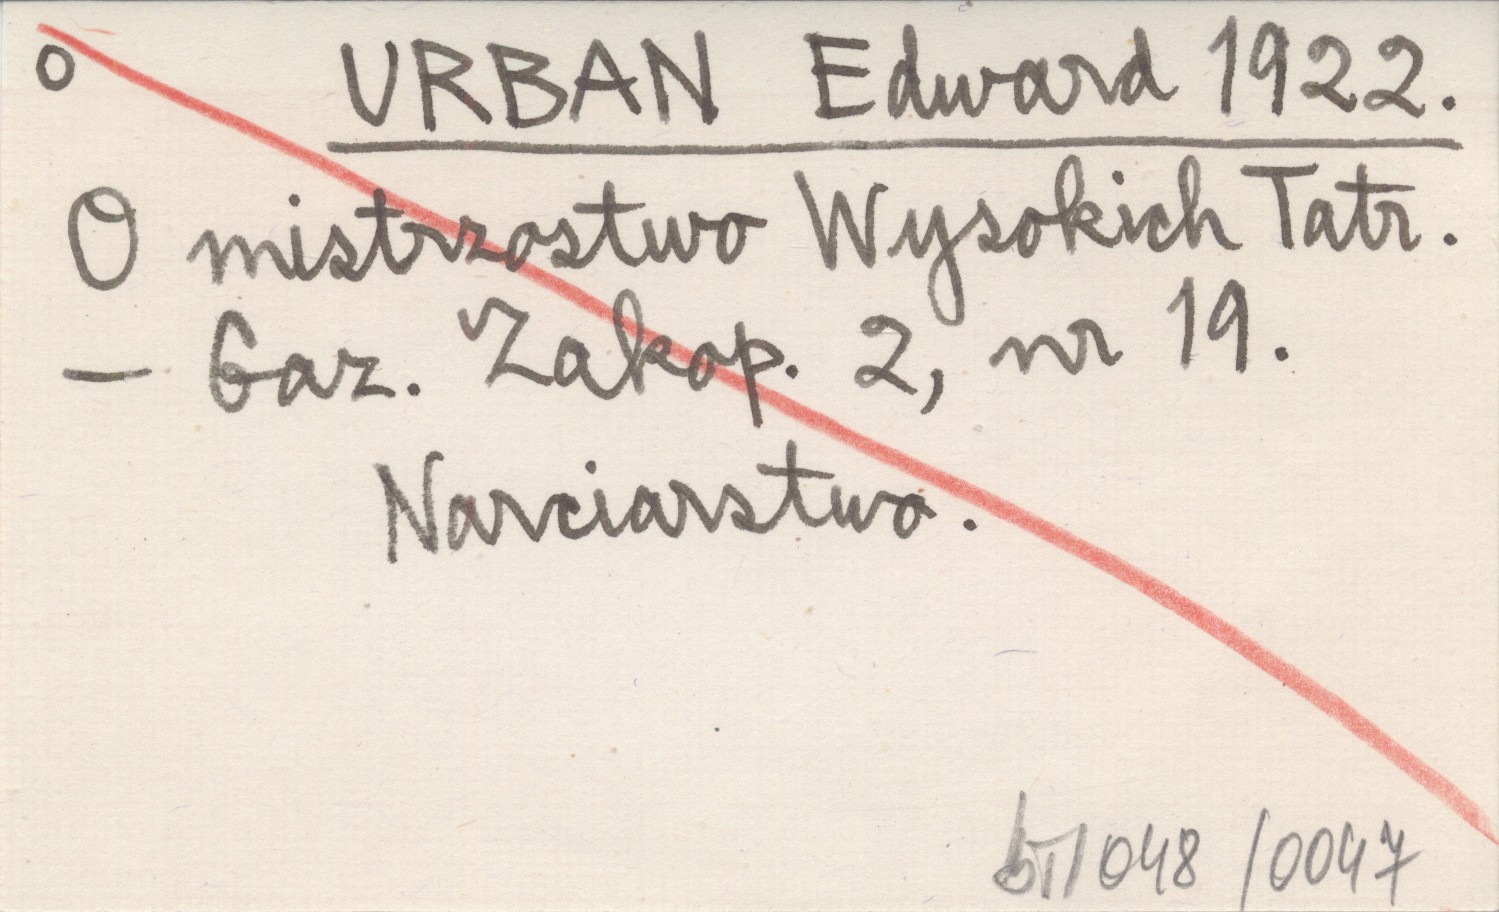 o URBAN Edward 1922.
O mistrzostwo Wysokich Tatr.
— Gaz. Zakop. 2, nr 19.
Narciarstwo.
bT/048/0047